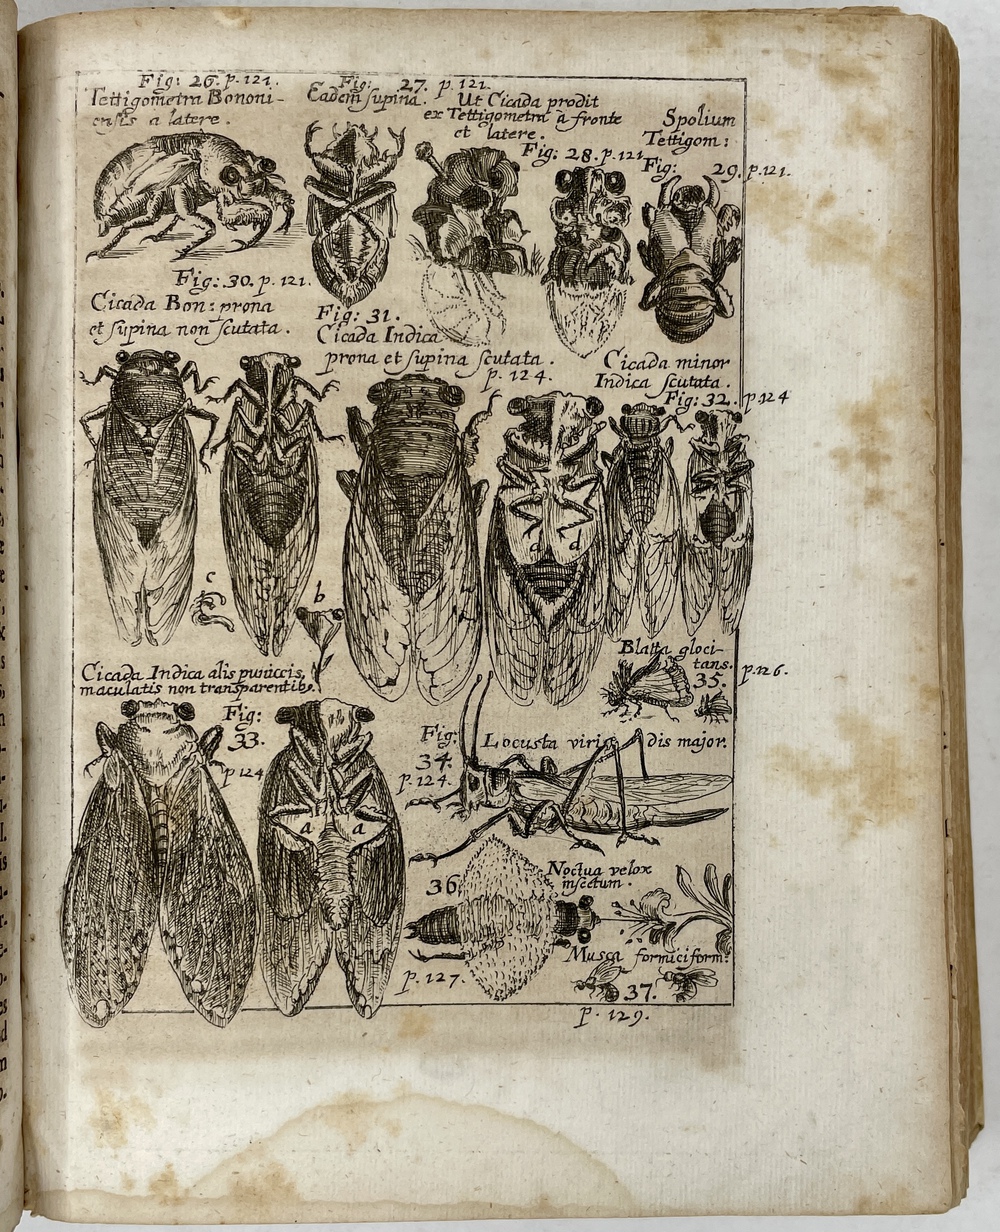 Fig: 26. p. 121.
Tettigometra Bononi-
ensis a latere.
Fig: 27. p. 121.
Eadem supina.
Ut Cicada prodit
ex Tettigometra à fronte
et latere.
Fig: 28. p. 121.
Spolium
Tettigom:
Fig: 29. p. 121.
Fig: 30. p. 121.
Cicada Bon: prona
et supina non scutata.
Fig: 31.
Cicada Indica
prona et supina scutata.
p. 124.
Cicada minor
Indica scutata.
Fig: 32. p. 124
c
b
d
Cicada Indica alis
maculatis non transparentib.
Fig:
33.
p 124
a a
Blatta gloci-
tans.
35.
p. 126.
Fig:
34.
p. 124.
Locusta viridis major.
36.
Noctua velox
insectum.
p. 127.
Musca formiciform:
37.
p. 129.